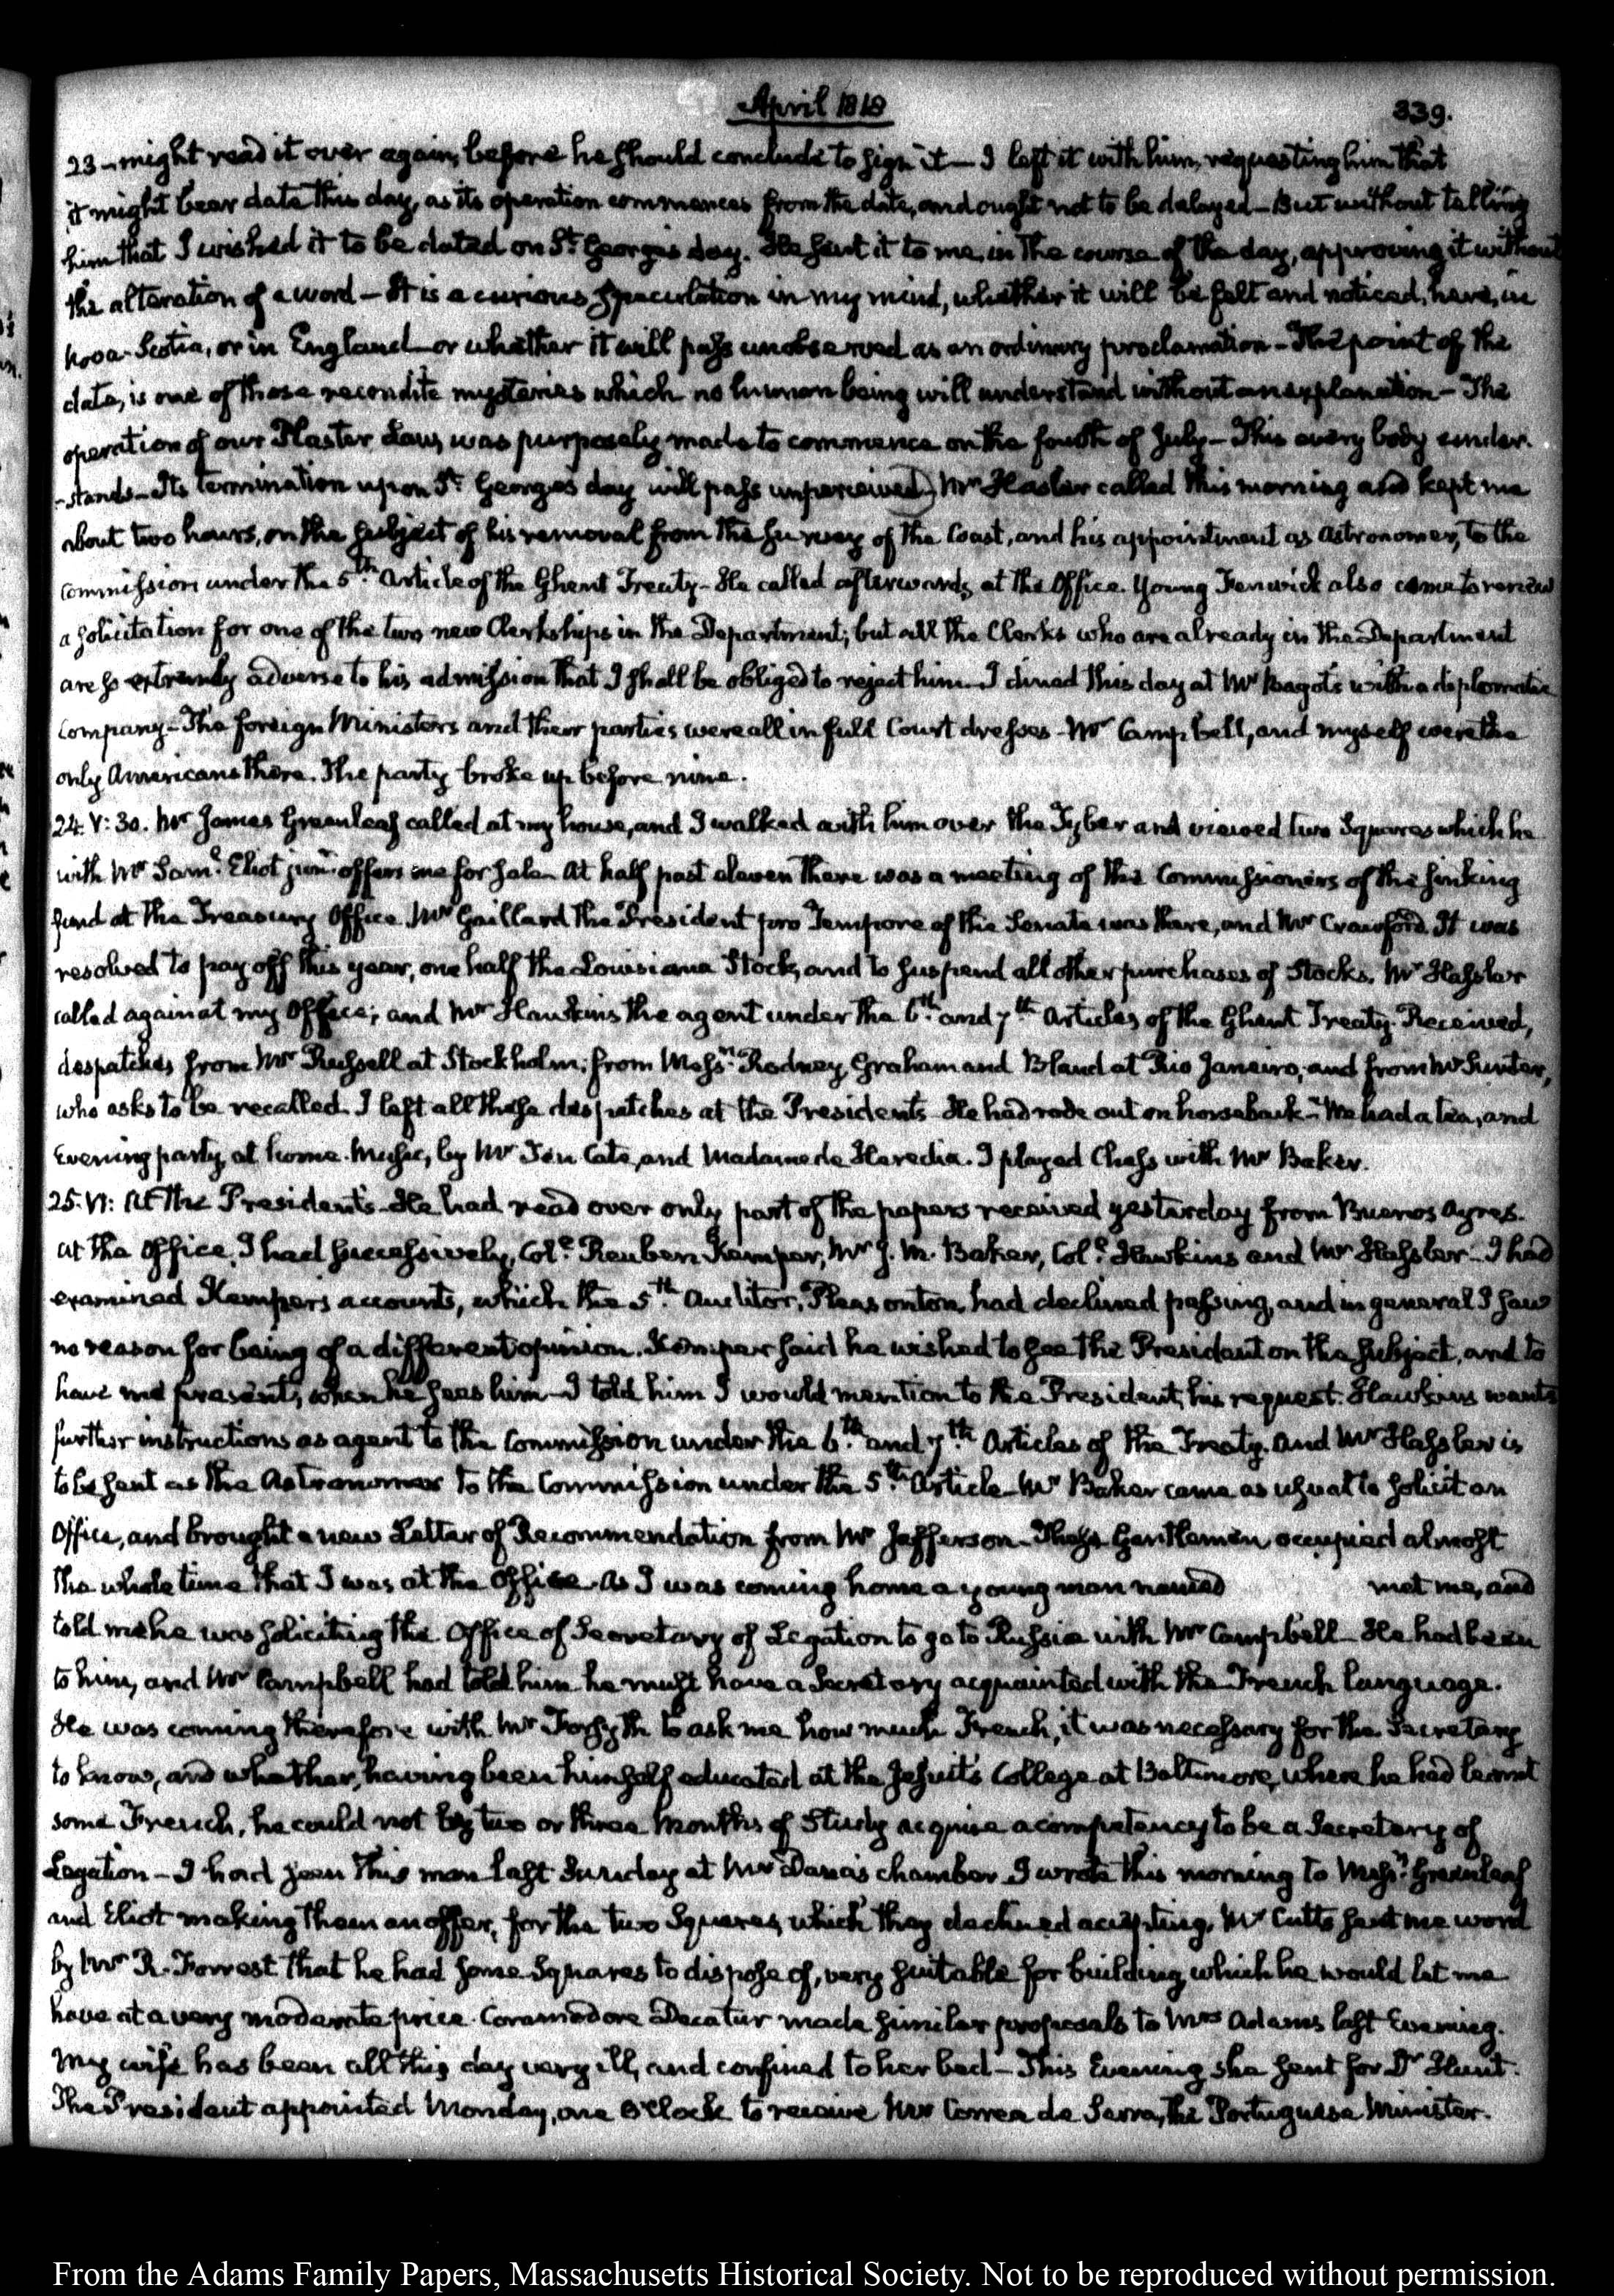 April 1818
339.
23 – might read it over again, before he should conclude to sign it — I left it with him, requesting him that
it might bear date this day, as its operation commences from the date, and ought not to be delayed – But without telling
him that I wished it to be dated on St. George's day. He sent it to me, in the course of the day, approving it without
the alteration of a word – It is a curious speculation in my mind, whether it will be felt and noticed, here, in
Nova-Scotia, or in England – or whether it will pass unobserved as an ordinary proclamation – The point of the
date, is one of those recondite mysteries which no human being will understand without an explanation – The
operation of our Plaster Law, was purposely made to commence on the fourth of July – This every body under-
-stands – Its termination upon St. George's day will pass unperceived) Mr Hasler called this morning and kept me
about two hours, on the subject of his removal from the survey of the Coast, and his appointment as Astronomer, to the
commission under the 5th. Article of the Ghent Treaty – He called afterwards at the Office. Young Fenwick also came to renew
a solicitation for one of the two new Clerkships in the Department; but all the Clerks who are already in the Department
are so extremely adverse to his admission that I shall be obliged to reject him – I dined this day at Mr Bagot's with a diplomatic
company – The foreign Ministers and their parties were all in full Court dresses – Mr Campbell, and myself were the
only Americans there. The party broke up before nine.
24. V: 30. Mr James Greenleaf called at my house, and I walked with him over the Tyber and viewed two Squares which he
with Mr Saml. Eliot junr. offers me for sale – At half past eleven there was a meeting of the Commissioners of the sinking
fund at the Treasury Office. Mr Gaillard the President pro Tempore of the Senate was there, and Mr Crawford. It was
resolved to pay off this year, one half the Louisiana Stock, and to suspend all other purchases of Stocks. Mr Hassler
called again at my Office; and Mr Hawkins the agent under the 6th. and 7th. Articles of the Ghent Treaty. Received,
despatches from Mr Russell at Stockholm; from Messrs. Rodney, Graham and Bland at Rio Janeiro; and from Mr Sumter,
who asks to be recalled. I left all these despatches at the Presidents – He had rode out on horseback – We had a tea, and
Evening party, at home. Music, by Mr Ten Cate, and Madame de Heredia. I played Chess with Mr Baker.
25. VI: At the President's – He had read over only part of the papers received yesterday from Buenos Ayres.
At the Office, I had successively, Coll. Reuben Kemper, Mr J. M. Baker, Coll. Hawkins and Mr Hassler – I had
examined Kemper's accounts, which the 5th. Auditor, Pleasonton, had declined passing, and in general I saw
no reason for being of a different opinion. Kemper said he wished to see the President on the subject, and to
have me present, when he sees him – I told him I would mention to the President, his request. Hawkins wants
further instructions as agent to the Commission under the 6th. and 7th. Articles of the Treaty. And Mr Hassler is
to be sent as the Astronomer to the Commission under the 5th. Article – Mr Baker came as usual to solicit an
Office, and brought a new Letter of Recommendation from Mr Jefferson – These Gentlemen occupied almost
the whole time that I was at the Office. As I was coming home a young man named met me, and
told me he was soliciting the Office of Secretary of Legation to go to Russia with Mr Campbell – He had been
to him, and Mr Campbell had told him he must have a Secretary acquainted with the French language.
He was coming therefore with Mr Forsyth to ask me how much French, it was necessary for the Secretary
to know, and whether, having been himself educated at the Jesuit's College at Baltimore, where he had learnt
some French, he could not by two or three months of study acquire a competency to be a Secretary of
Legation – I had seen this man last Sunday at Mr Dana's chamber. I wrote this morning to Messrs. Greenleaf
and Eliot making them an offer, for the two Squares, which they declined accepting. Mr Cutts sent me word
by Mr R. Forrest that he had some Squares to dispose of, very suitable for building which he would let me
have at a very moderate price. Commodore Decatur made similar proposals to Mrs Adams last Evening.
My wife has been all this day very ill, and confined to her bed – This Evening she sent for Dr Hunt.
The President appointed Monday, one O'Clock to receive Mr Correa de Serra, the Portuguese Minister.
From the Adams Family Papers, Massachusetts Historical Society. Not to be reproduced without permission.